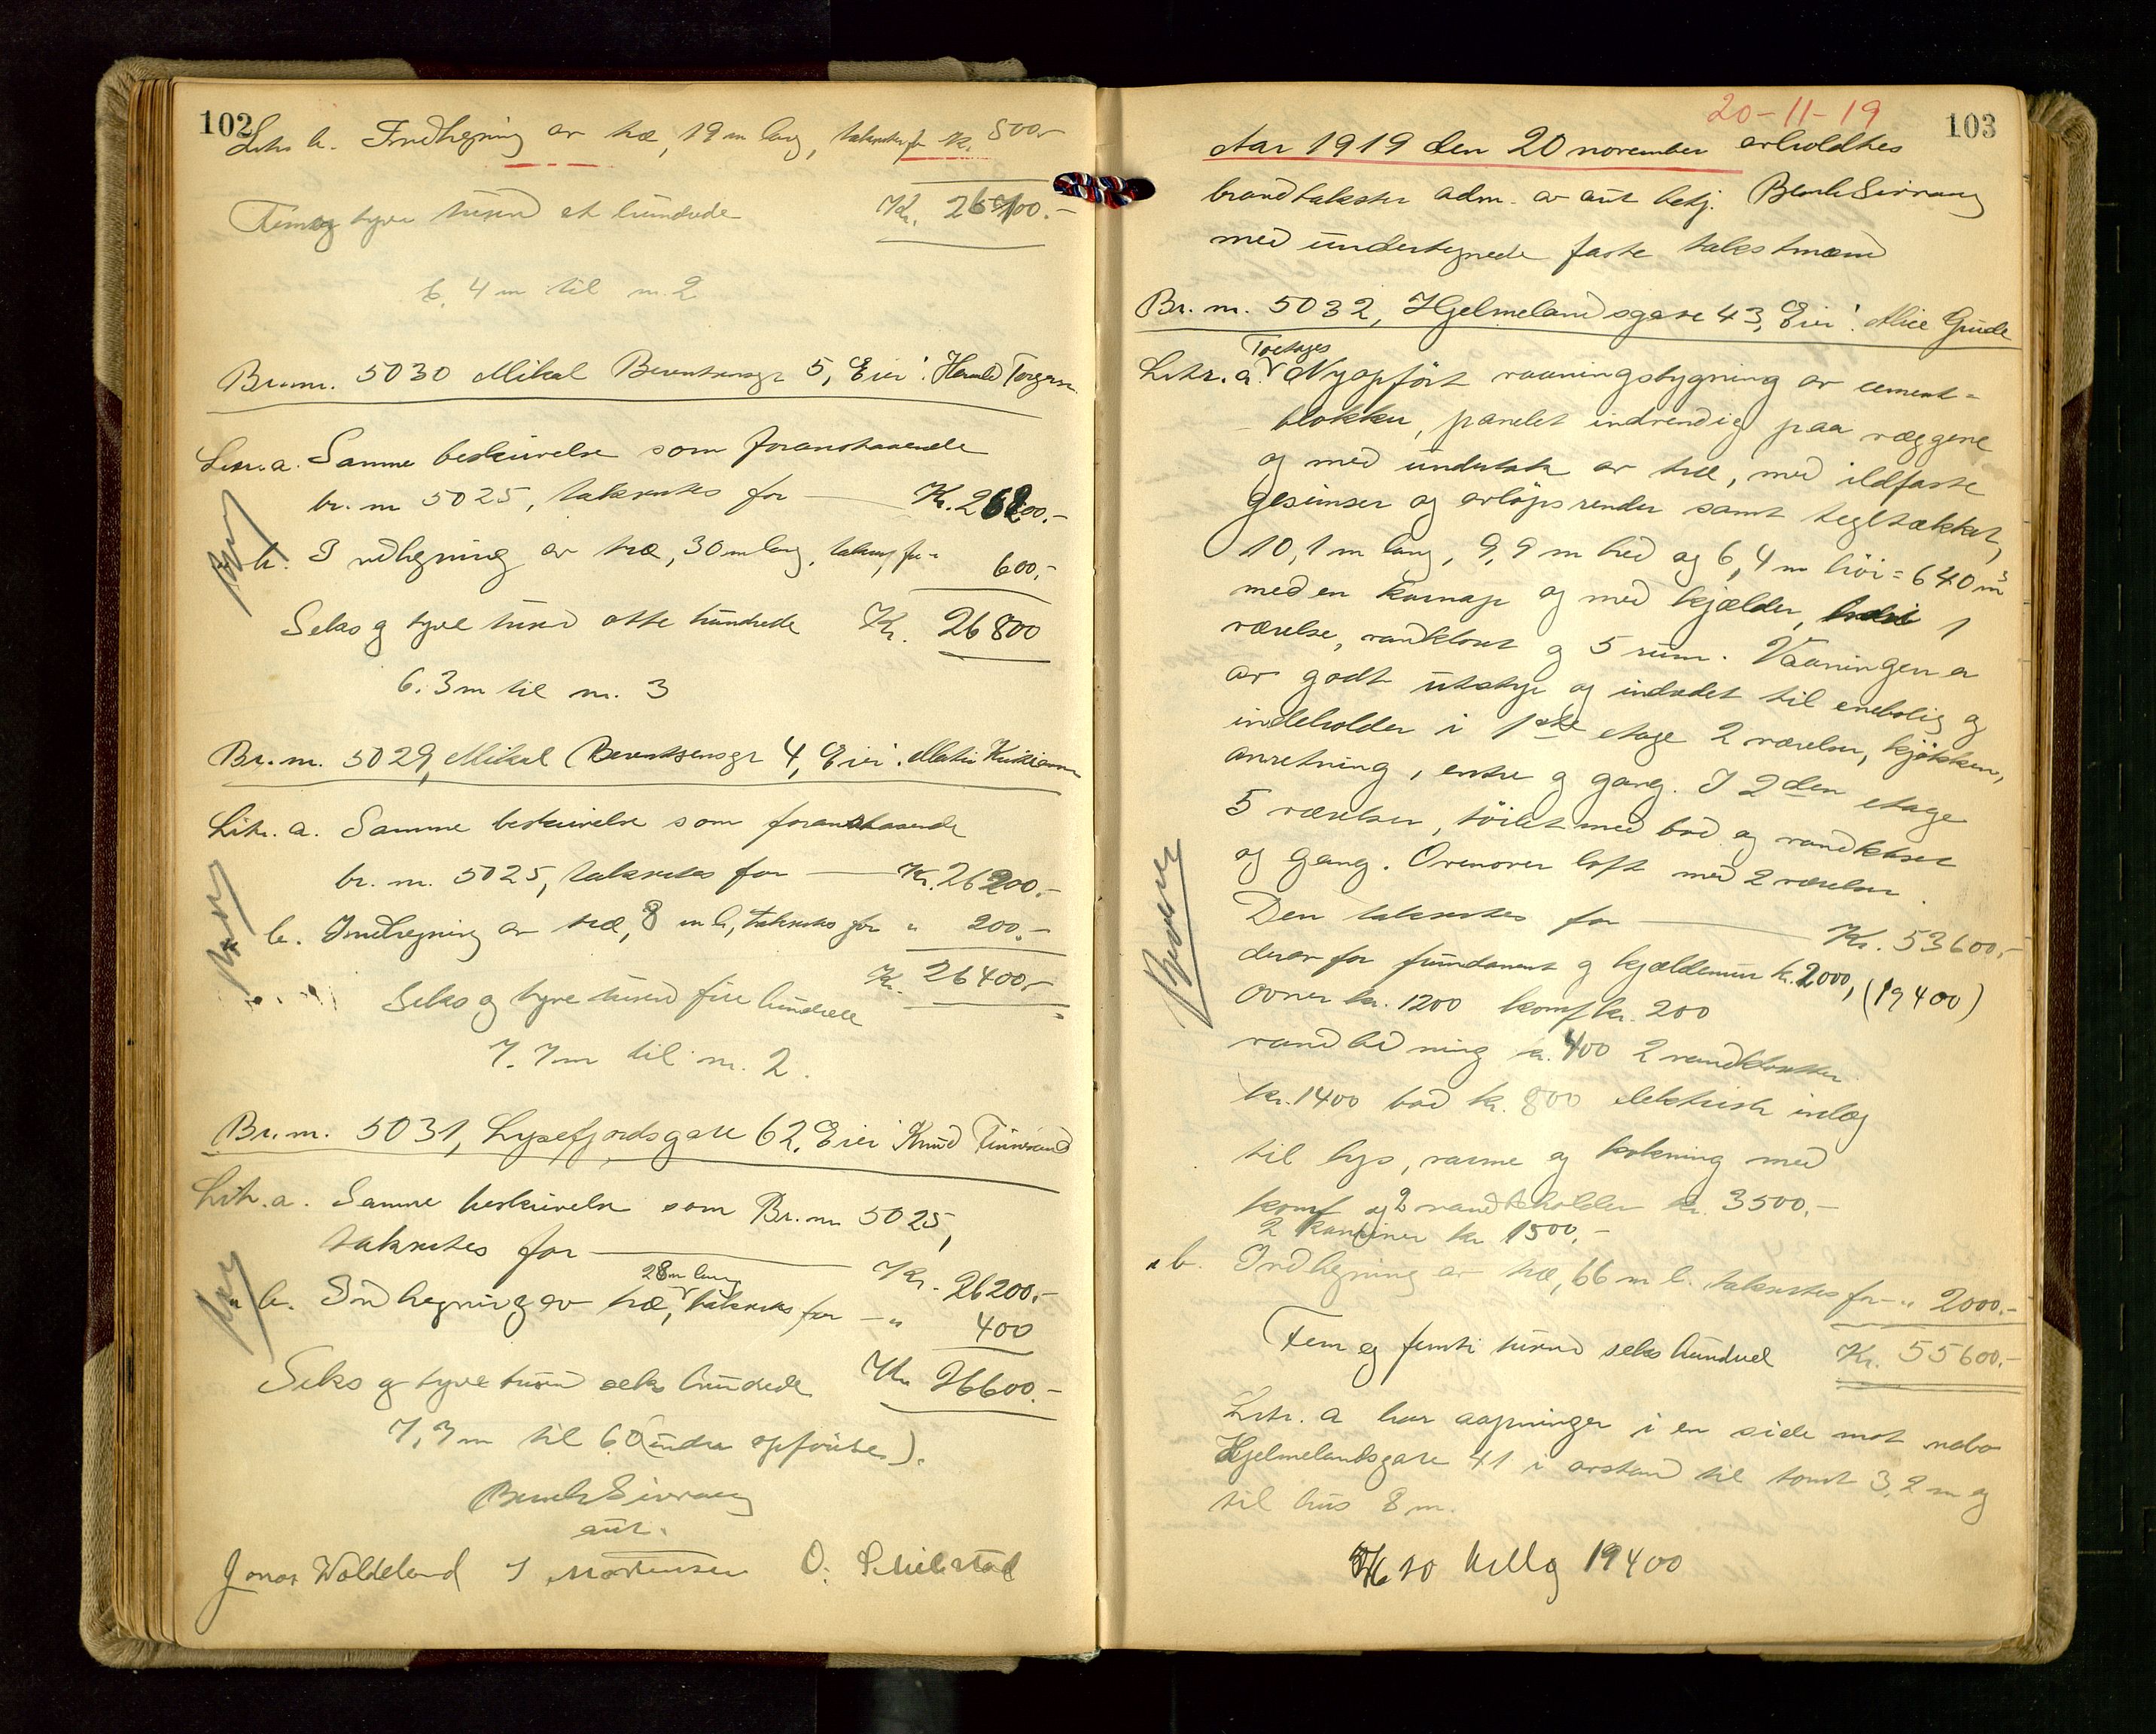 102
Litr b. Indhegning av træ, 19 m lang, takseres for Kr. 500,-
Fem og tyve tusen et hundrede Kr. 26100.-
6,4 m til nr. 2
Br. nr. 5030 Mikal Berentsensgt 5, Eier: Harald Torgersen
Litr. a. Samme beskrivelse som foranstaaende
br. nr 5025, takseres for Kr. 26200.-
b. Indhegning av træ, 30 m lang, takseres for " 600,-
Seks og tyve tusen otte hundrede Kr. 26800
6.3 m til nr. 3
Br. nr. 5029, Mikal Berentsensgt 4, Eier:
Litr. a. Samme beskrivelse som foranstaaende
br. nr. 5025, takseres for Kr. 26200.-
b. Indhegning av træ, 8 m l., takseres for " 200.-
Kr. 26400,-
Seks og tyve tusen fire hundrede
7.7 m til nr. 2.
Br. nr. 5031, Lysefjordsgate 62, Eier Knud
Litr. a. Samme beskrivelse som Br. nr 5025,
takseres for Kr. 26200,-
28 m lang
" b. Indhegning av træ, takseres for - " 400
Seks og tyve tusen seks hundrede Kr 26600.-
7,7 m til 60 (under opførelse).
aut.
Jonas Woldeland I Mortensen O.
20-11-19
103
Aar 1919 den 20 november avholdtes
brandtakster adm. av aut betj.
med undertegnede faste takstmænd
Br. nr. 5032, Hjelmelandsgate 43, Eier: Alice Gude
Toetages
Litr. a. Nyopført vaaningsbygning av cement-
blokker, panelet indvendig paa væggene
og med undertak av træ, med ildfaste
gesimser og avløpsrender samt tegltækket,
10,1 m lang, 9,9 m bred og 6,4 m høi = 640 m³
med en karnap og med kjælder, 1
værelse, vandkloset og 5 rum. Vaaningen er
av godt utstyr og indredet til enebolig og
indeholder i 1ste etage 2 værelser, kjøkken,
anretning, entre og gang. I 2den etage
5 værelser, toilet med bad og vandkloset
og gang. Ovenover loft med 2 værelser
Den takseres for Kr. 53600,-
derav for fundament og kjældermur kr. 2000, (19400)
Ovner kr. 1200 komf kr. 200
vandledning kr. 400 2 vandklosetter
kr. 1400 bad kr. 800 elektrisk inlæg
til lys, varme og kokning med
komf og 2 vandbeholder kr. 3500.-
2 kaminer kr 1500.-
" b. Indhegning av træ, 66 m l. takseres for - " 2000.-
Fem og femti tusen seks hundred Kr. 55600.-
Litr. a har aapninger i en side mot nabo
Hjelmelandsgate 41 i avstand til tomt 3,2 m og
til hus 8 m.
19400